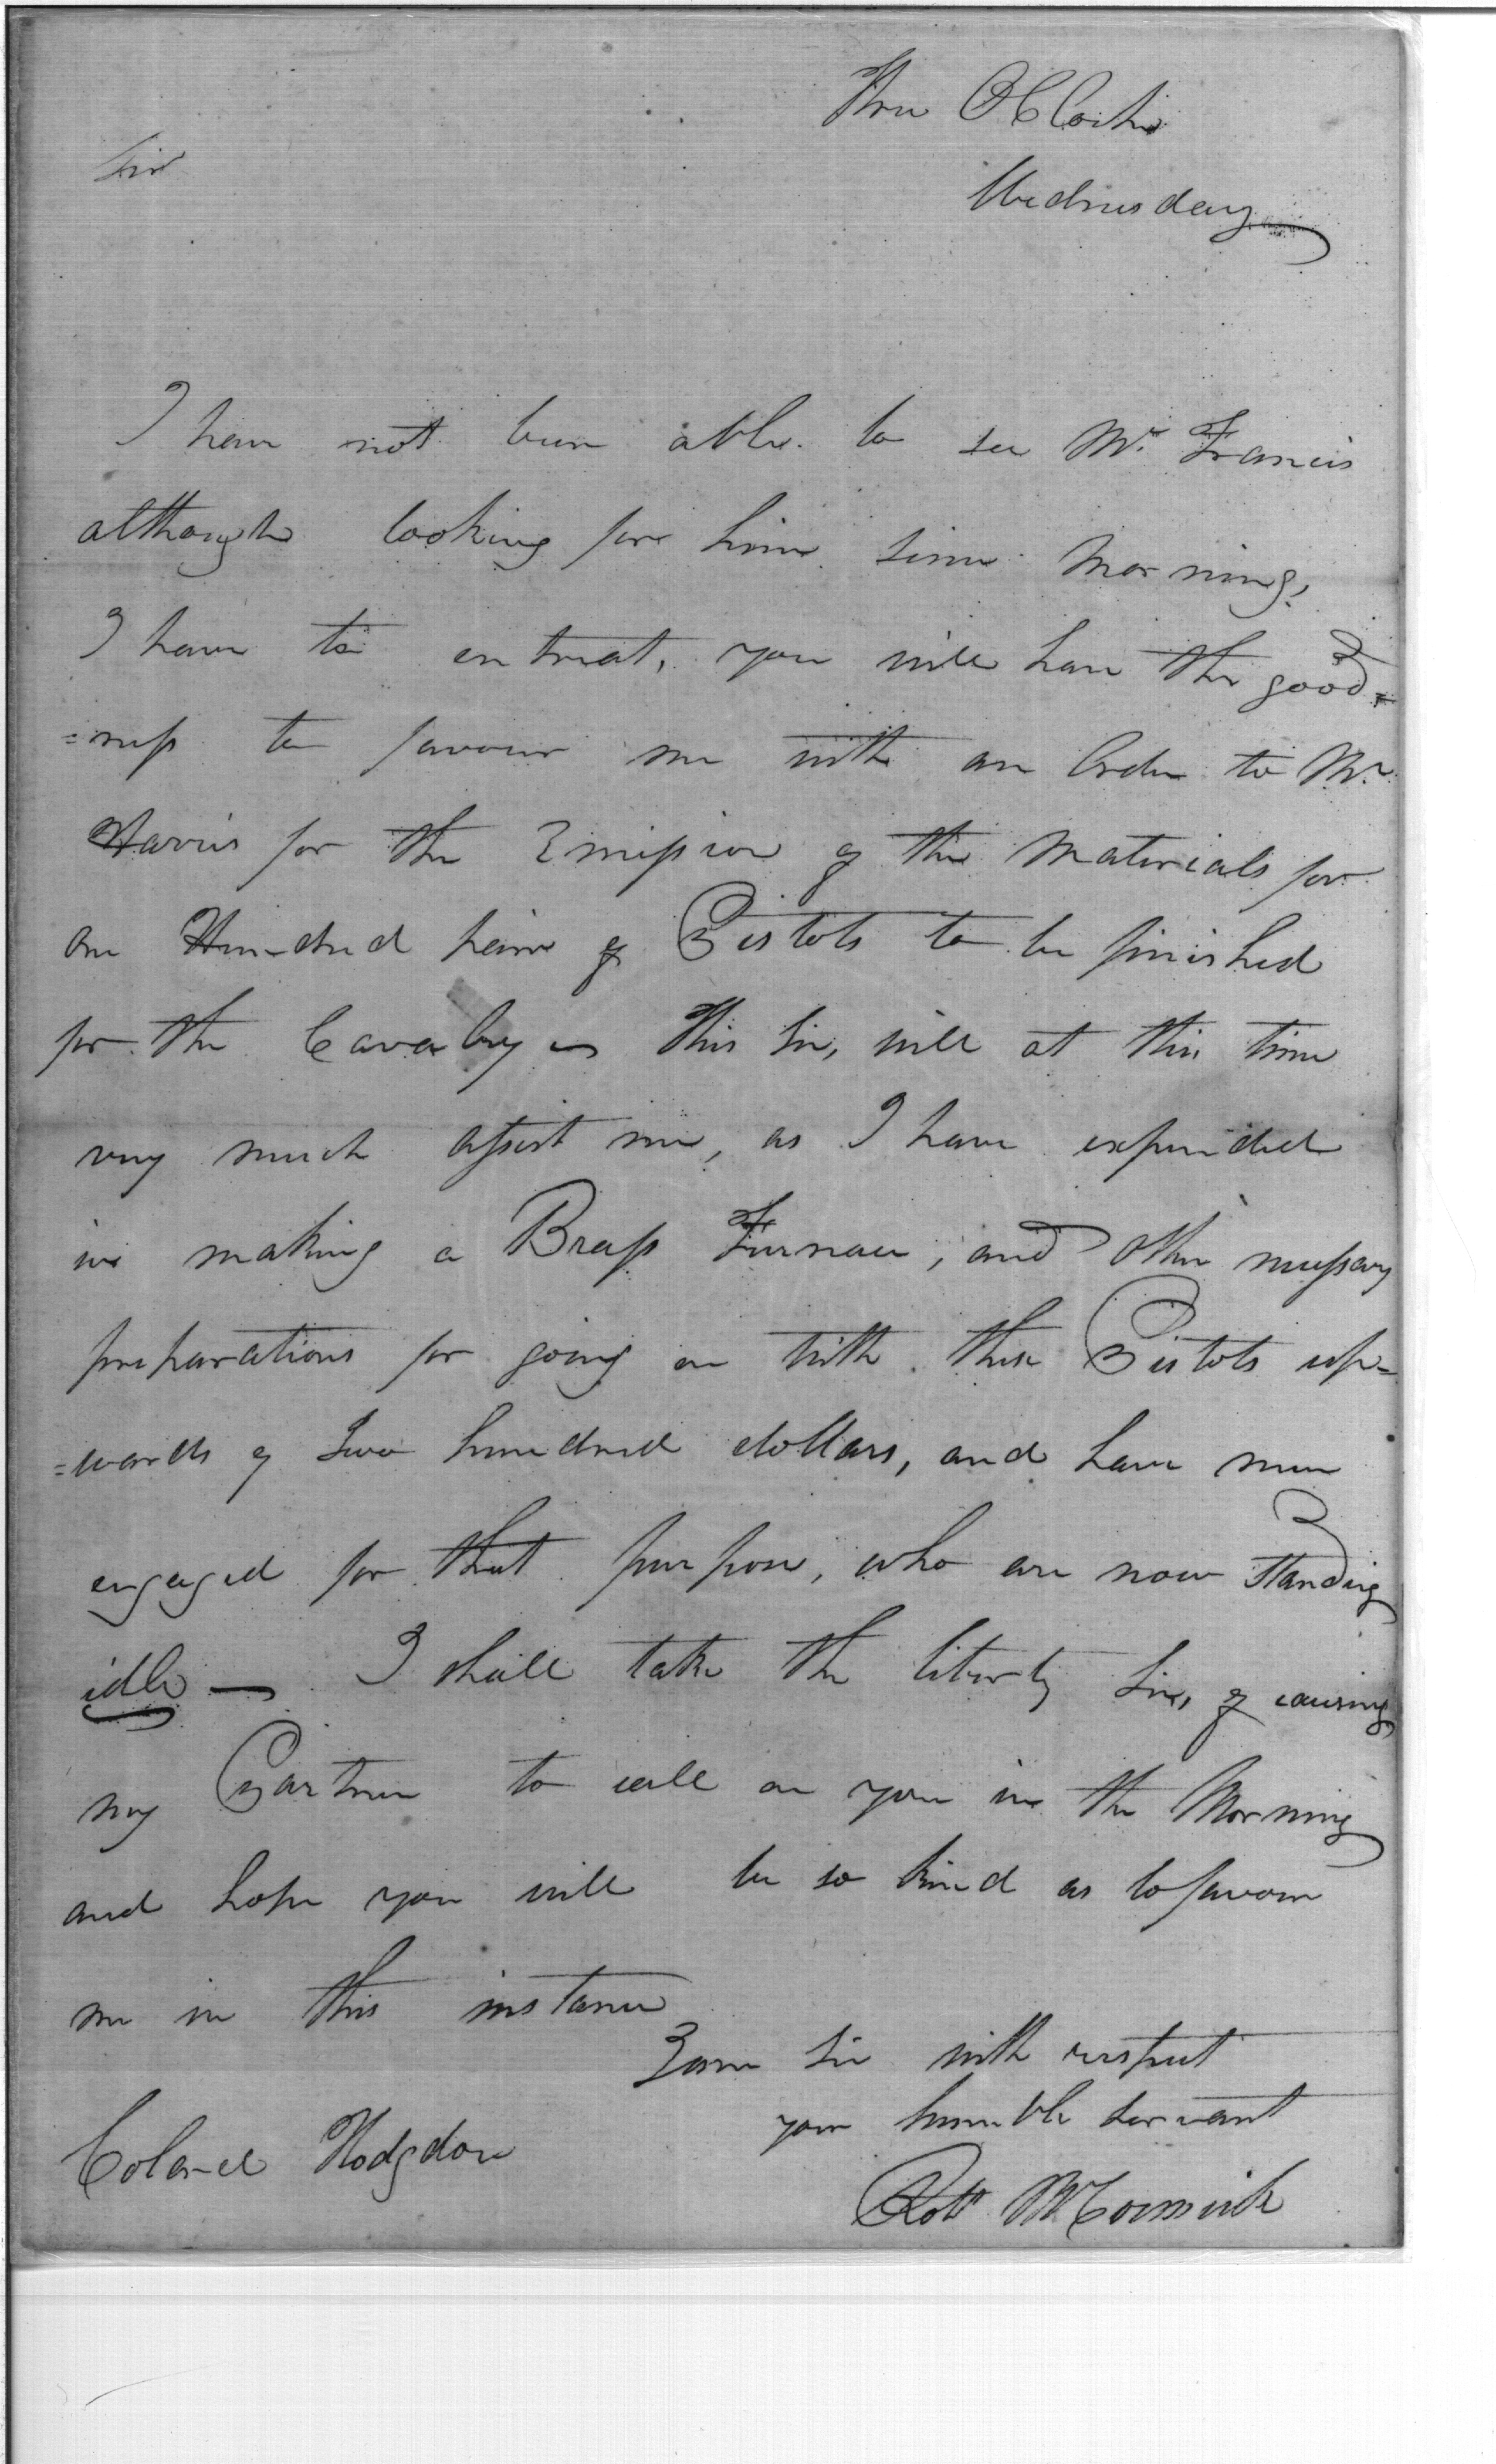 Three O Clock
Wednesday
Sir
I have not been able to see Mr. Francis
although looking for him since Morning,
I have to entreat, you will have the good=
=ness to favour me with an Order to Mr.
Harris for the Emission of the Materials for
one Hundred pair of Pistols to be finished
for the Cavalry — This Sir, will at this time
very much assist me, as I have expended
in making a Brass Furnace, and other necessary
preparations for going on with these Pistols up=
=wards of Two hundred dollars, and have men
engaged for that purpose, who are now standing
idle — I shall take the liberty Sir, of causing
my Partner to call on you in the Morning
and hope you will be so kind as to favour
me in this instance
I am Sir with respect
your humble servant
Robt McCormick
Colonel Hodgdon